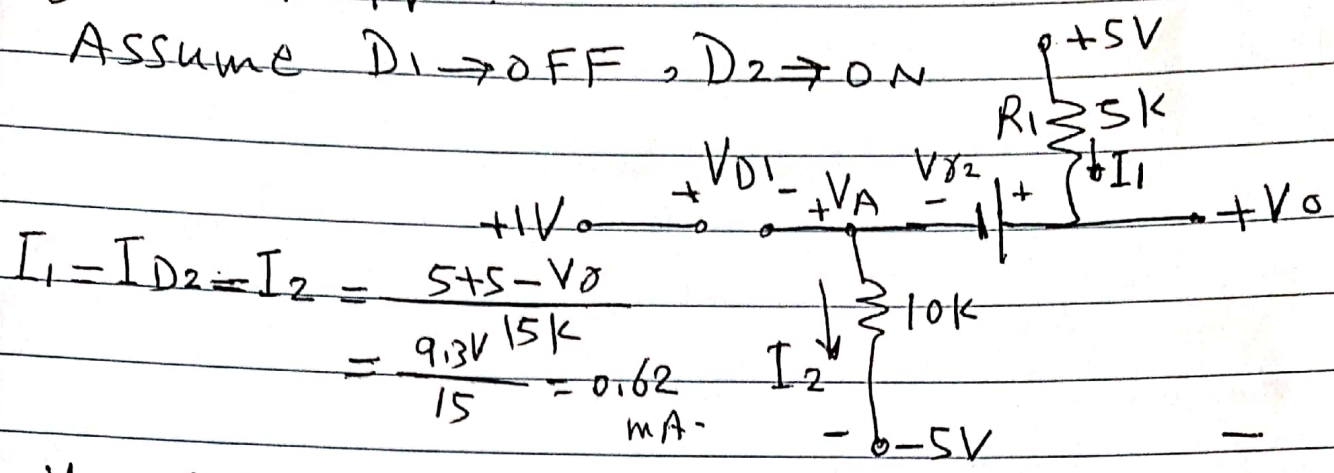 Assume D1→OFF, D2→ON
+5V
R1 5K
I1
+ VD1 - +VA - Vγ2 +
+1V
+Vo
I1 = ID2 = I2 = 5+5-Vγ / 15K
10K
= 9.3V / 15 = 0.62 mA.
I2
- -5V -